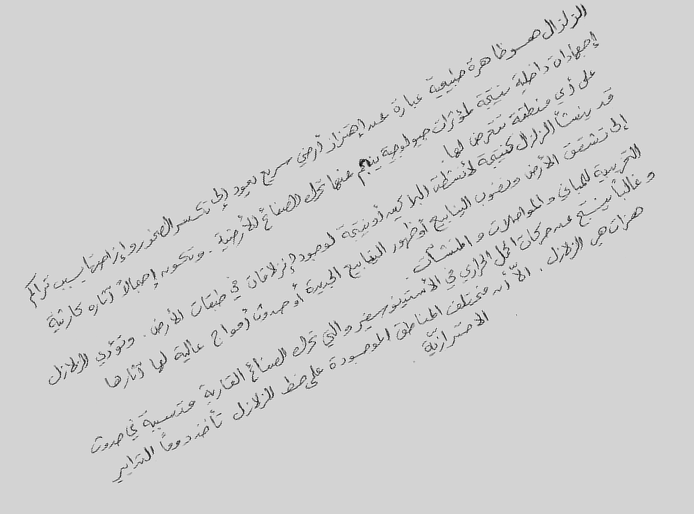 الزلزال هو ظاهرة طبيعية عبارة عن إهتزاز أرضي سريع يعود إلى تكسر الصخور وإزاحتها بسبب تراكم
إجهادات داخلية نتيجة لمؤثرات جيولوجية ينجم عنها تحرك الصفائح الأرضية . وتكون إجمالاً آثاره كارثية
على أي منطقة تتعرض لها.
قد ينشأ الزلزال كنتيجة لأنشطة البراكين أو نتيجة لوجود إنزلاقات في طبقات الأرض . وتؤدي الزلازل
إلى تشقق الأرض ونضوب الينابيع أو ظهور الينابيع الجديدة أو حدوث أمواج عالية لها آثارها
التخريبية للمباني والمواصلات والمنشآت .
وغالباً ينتج عن حركات الحمل الحراري في الأستينوسفير والتي تحرك الصفائح القارية متسببة في حدوث
هزات هي الزلازل . الّا أن مختلف المناطق الموجودة على خط الزلازل تأخذ دوماً التدابير
الاحترازيّة .